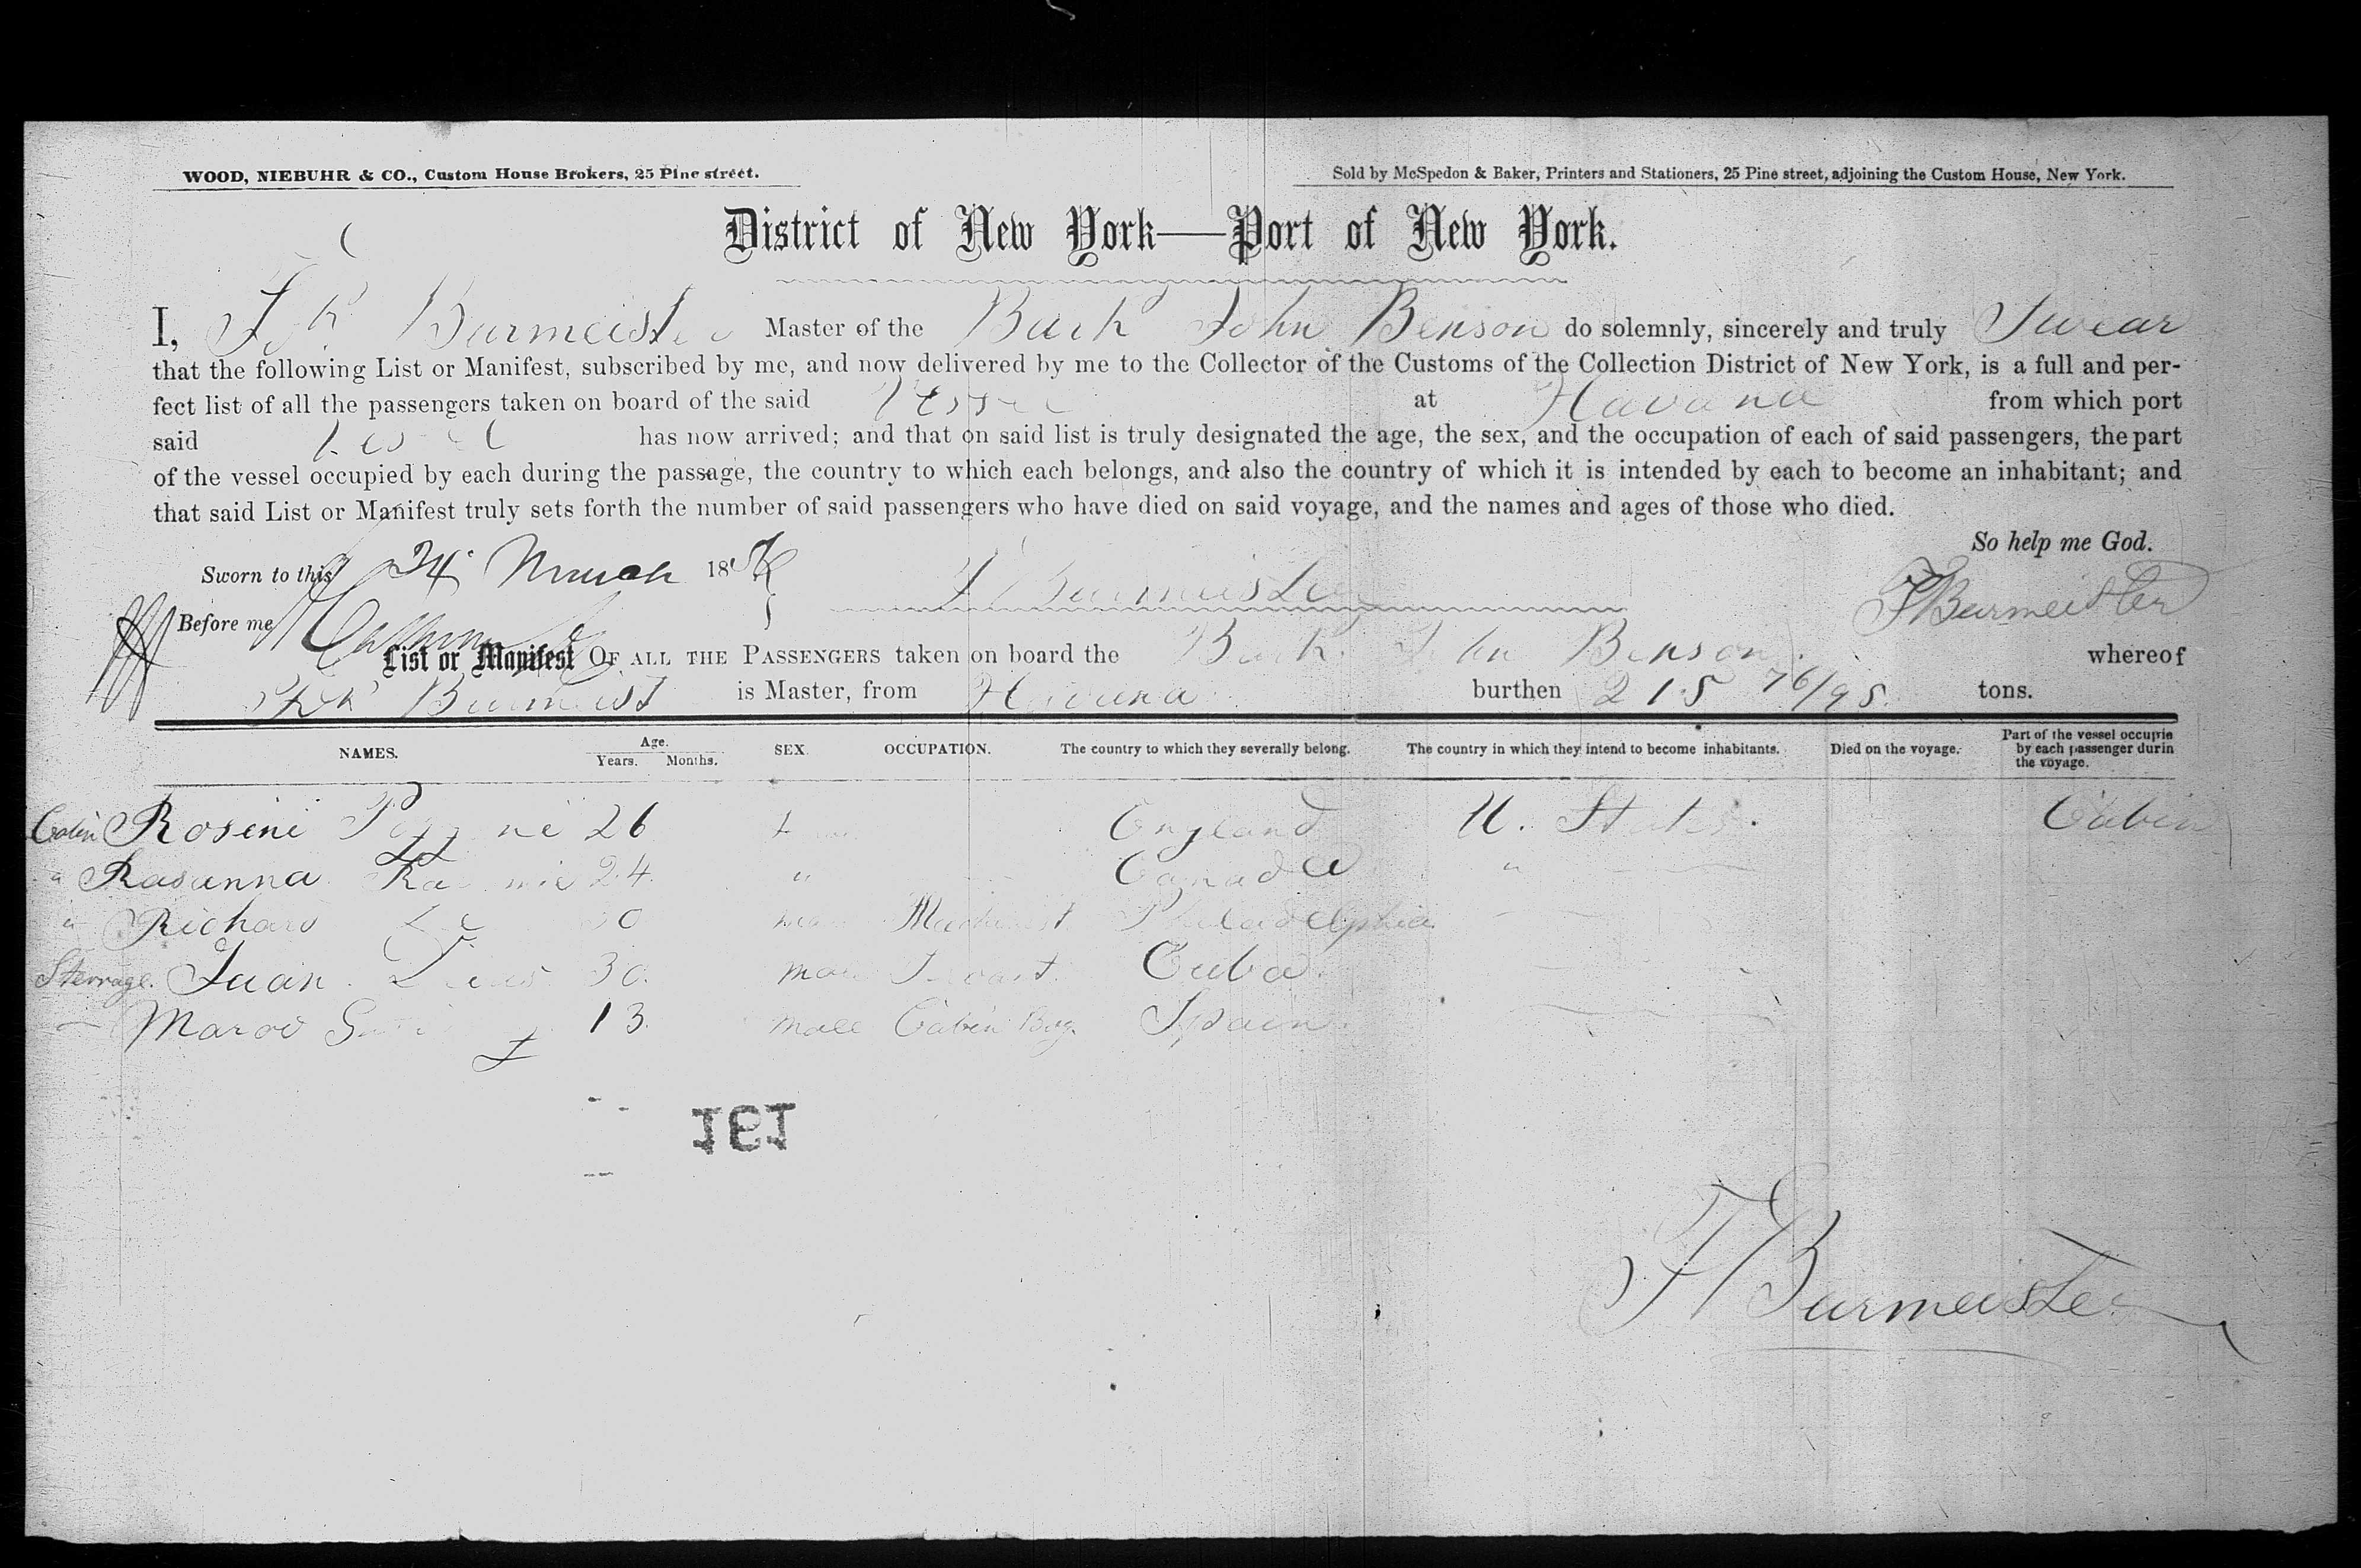 WOOD, NIEBUHR & CO., Custom House Brokers, 25 Pine street.
Sold by McSpedon & Baker, Printers and Stationers, 25 Pine street, adjoining the Custom House, New York.
District of New York—Port of New York.
I, Burmeister Master of the Bark John Benson do solemnly, sincerely and truly Swear
that the following List or Manifest, subscribed by me, and now delivered by me to the Collector of the Customs of the Collection District of New York, is a full and per-
fect list of all the passengers taken on board of the said Vessel at Havana from which port
said Vessel has now arrived; and that on said list is truly designated the age, the sex, and the occupation of each of said passengers, the part
of the vessel occupied by each during the passage, the country to which each belongs, and also the country of which it is intended by each to become an inhabitant; and
that said List or Manifest truly sets forth the number of said passengers who have died on said voyage, and the names and ages of those who died.
So help me God.
Sworn to this 24 March 18
F Burmeister
F Burmeister
Before me
List or Manifest OF ALL THE PASSENGERS taken on board the Bark John Benson whereof
Burmeist is Master, from Havana burthen 215 76/95 tons.
NAMES. Age. Years. Months. SEX. OCCUPATION. The country to which they severally belong. The country in which they intend to become inhabitants. Died on the voyage. Part of the vessel occupie by each passenger durin the voyage.
Cabin Rosine 26 England U. States. Cabin
" Rasanna 24 " Canada "
" Richard Machinist Philadelphia
Sterrage. Juan 30. Cuba
Marco 13. male Cabin Boy. Spain
131
F Burmeister